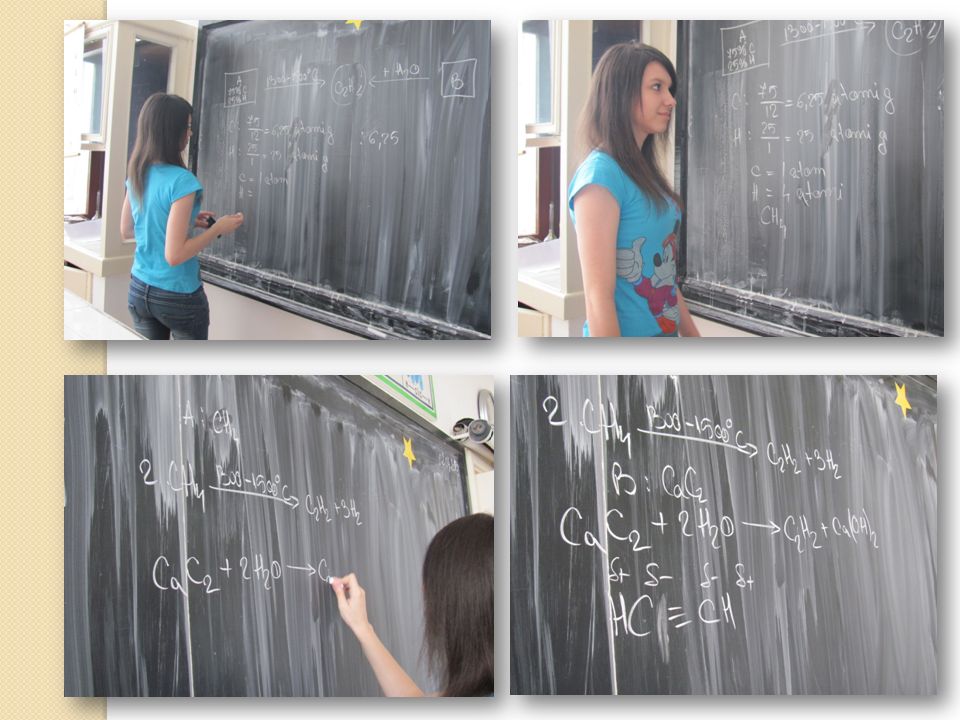 A
75% C
25% H
1300-1500°C
C2H2
+ H2O
B
C: 75/12 = 6,25 atomi g
: 6,25
H: 25/1 = 25 atomi g
C = 1 atom
H =
A
75% C
25% H
C2H2
C: 75/12 = 6,25 atomi g
H: 25/1 = 25 atomi g
C = 1 atom
H = 4 atomi
CH4
A: CH4
2 CH4 1300-1500°C → C2H2 + 3H2
CaC2 + 2H2O → C
2 CH4 1300-1500°C → C2H2 + 3H2
B: CaC2
CaC2 + 2H2O → C2H2 + Ca(OH)2
δ+ δ- δ- δ+
HC ≡ CH